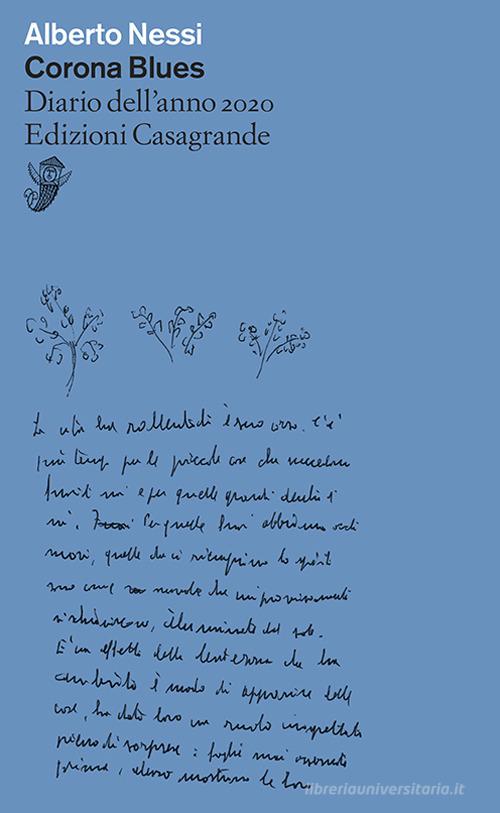 Alberto Nessi
Corona Blues
Diario dell'anno 2020
Edizioni Casagrande
La vita ha rallentato il suo corso. C'è
più tempo per le piccole cose che succedono
fuori di noi e per quelle grandi dentro di
noi. Per quelle fuori abbiamo occhi
nuovi, quelle che ci
sono come nuvole che improvvisamente
si schiariscono, illuminate dal sole.
È un effetto della lentezza che ha
cambiato il modo di apparire delle
cose, ha dato loro un ruolo inaspettato
pieno di sorprese: foglie mai osservate
prima, adesso mostrano le loro
libreriauniversitaria.it